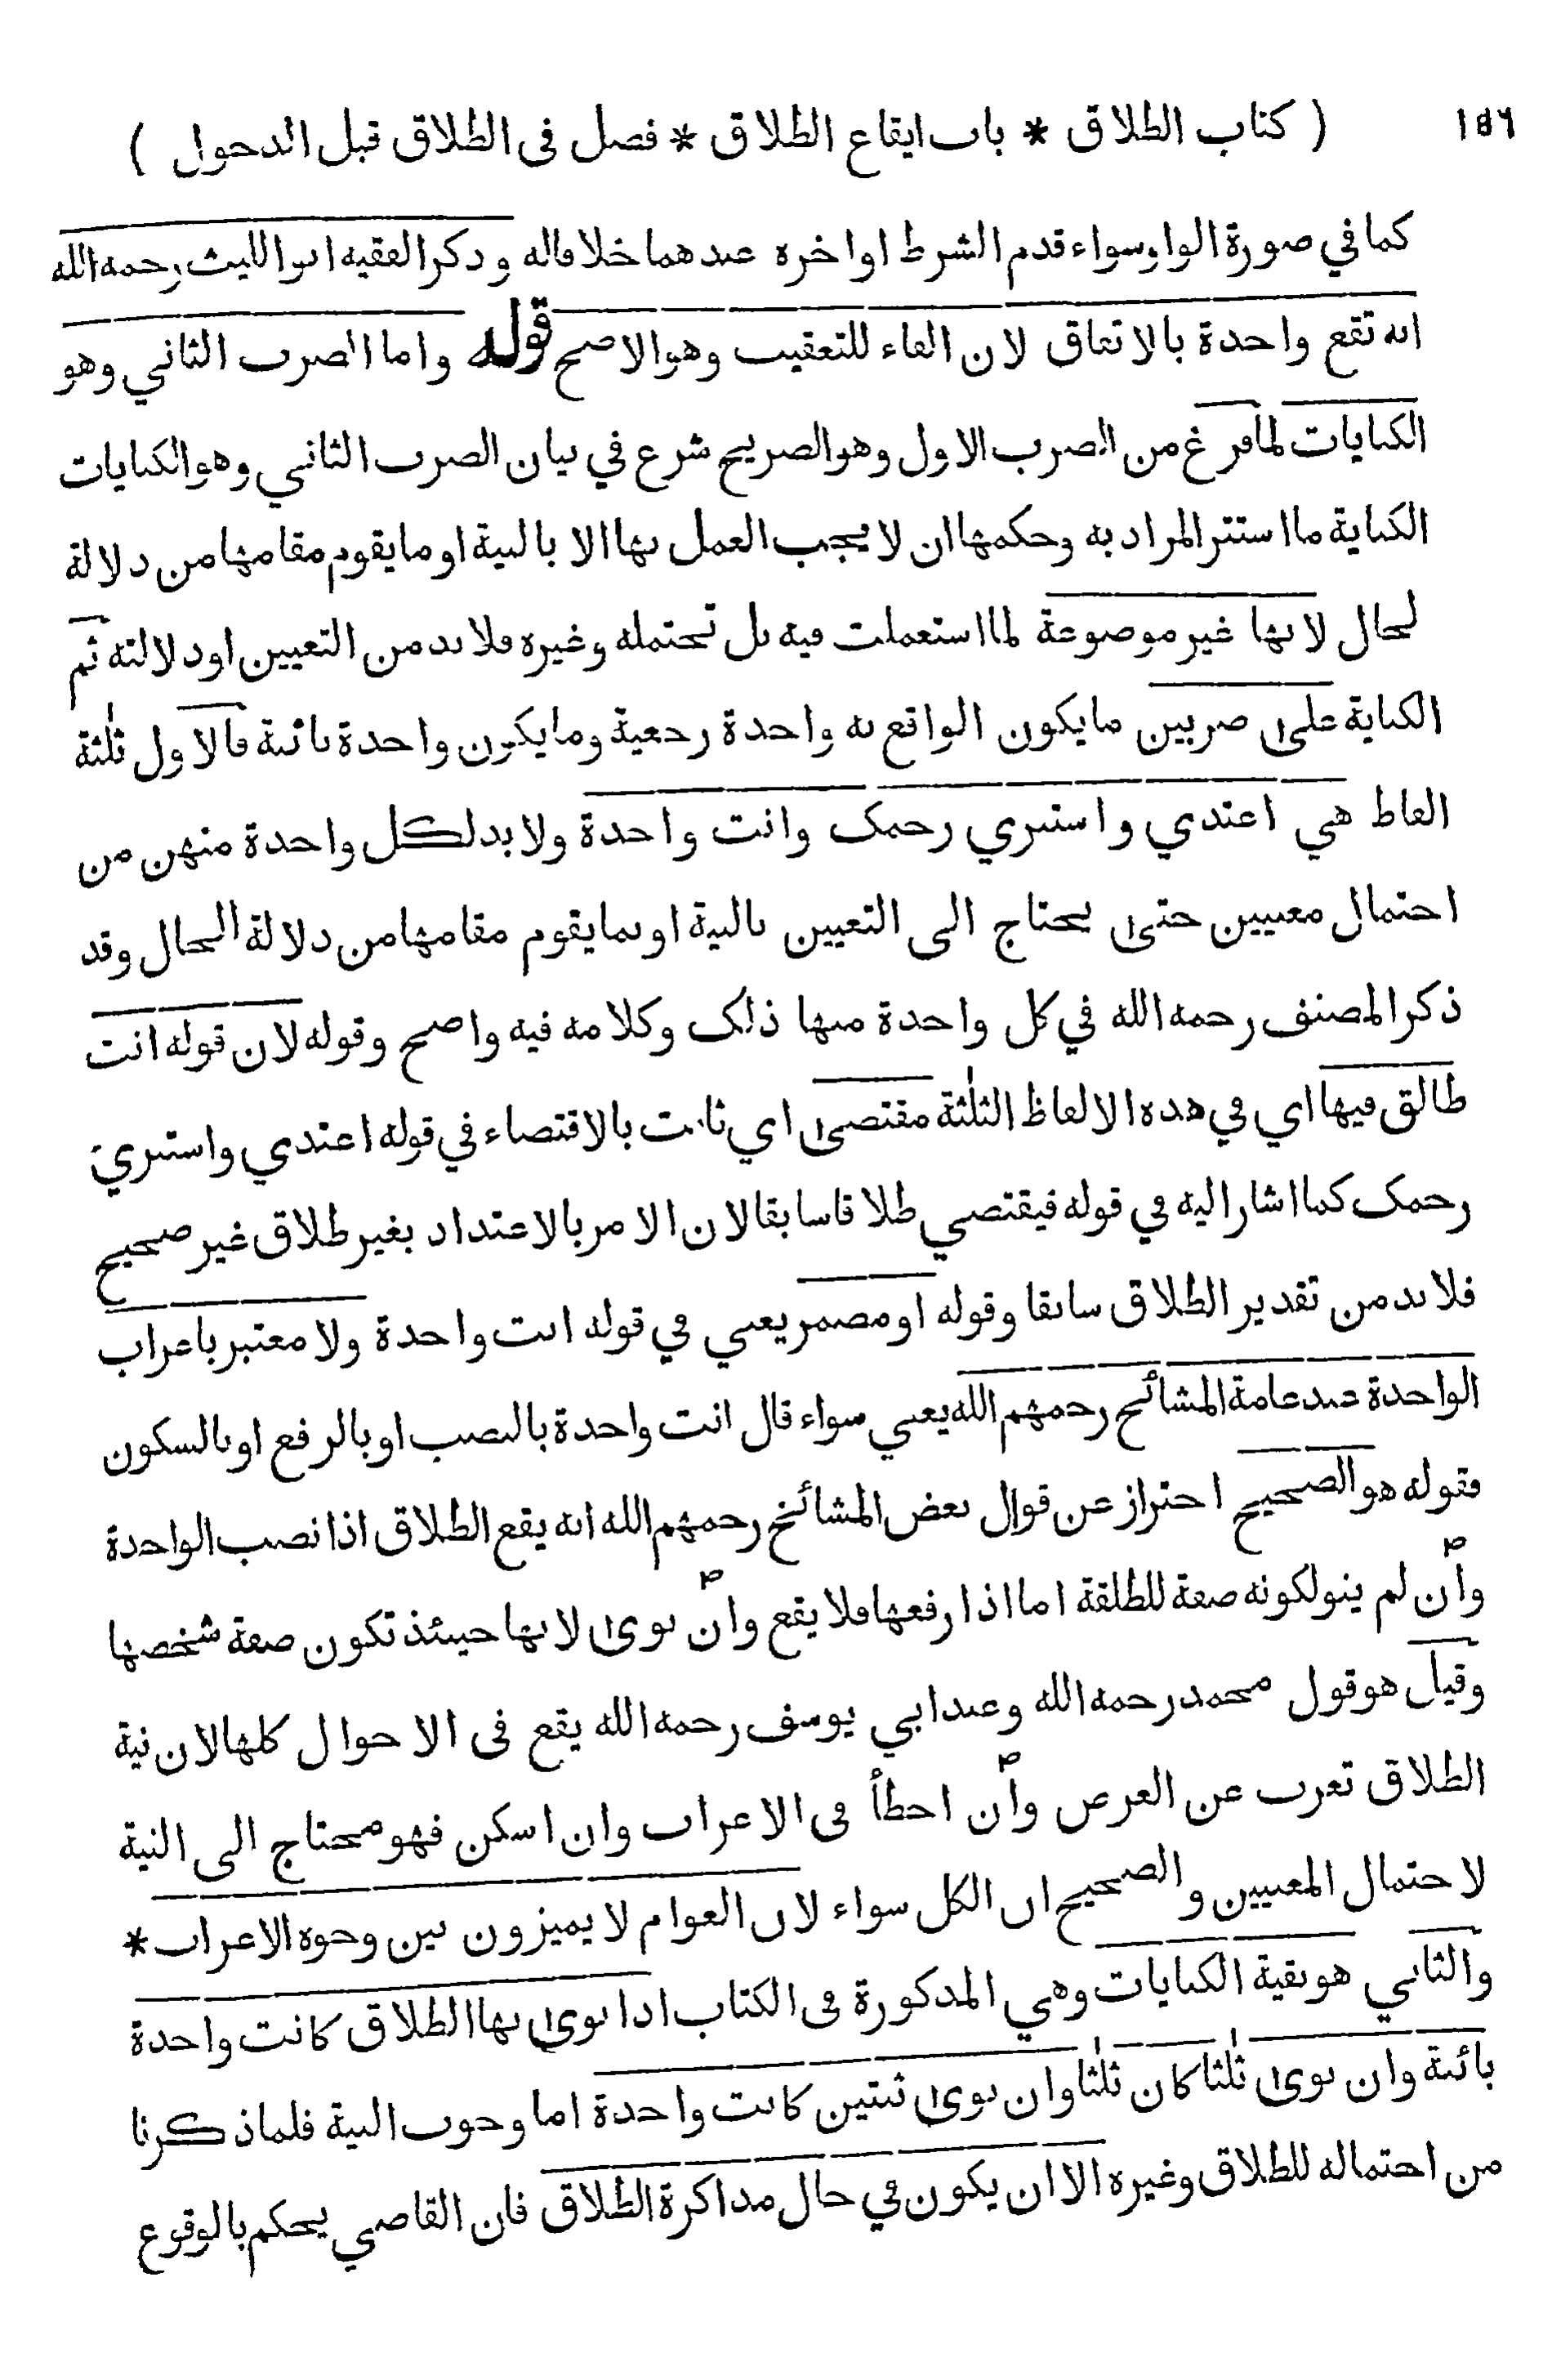 ١٥٦ ( كتاب الطلاق * باب ايقاع الطلاق * فصل فى الطلاق قبل الدخول )
كما في صورة الواو سواء قدم الشرط او اخره عندهما خلافا له وذكر الفقيه ابو الليث رحمه الله
انه تقع واحدة بالاتفاق لان الفاء للتعقيب وهو الاصح قوله واما الضرب الثاني وهو
الكنايات لما فرغ من الضرب الاول وهو الصريح شرع في بيان الضرب الثاني وهو الكنايات
الكناية ما استتر المراد به وحكمها ان لا يجب العمل بها الا بالنية او ما يقوم مقامها من دلالة
لحال لانها غير موضوعة لما استعملت فيه بل تحتمله وغيره فلا بد من التعيين او دلالته ثم
الكناية على ضربين ما يكون الواقع به واحدة رجعية وما يكون واحدة بائنة فالاول ثلثة
الفاظ هي اعتدي واستبري رحمك وانت واحدة ولا بد لكل واحدة منهن من
احتمال معنيين حتى يحتاج الى التعيين بالنية او بما يقوم مقامها من دلالة الحال وقد
ذكر المصنف رحمه الله في كل واحدة منها ذلك وكلامه فيه واضح وقوله لان قوله انت
طالق فيها اي في هذه الالفاظ الثلثة مقتضى اي ثابت بالاقتضاء في قوله اعتدي واستبري
رحمك كما اشار اليه في قوله فيقتضي طلاقا سابقا لان الامر بالاعتداد بغير طلاق غير صحيح
فلا بد من تقدير الطلاق سابقا وقوله او مضمر يعني في قوله انت واحدة ولا معتبر باعراب
الواحدة عند عامة المشائخ رحمهم الله يعني سواء قال انت واحدة بالنصب او بالرفع او بالسكون
فقوله هو الصحيح احتراز عن قوال بعض المشائخ رحمهم الله انه يقع الطلاق اذا نصب الواحدة
وان لم ينو لكونه صفة للطلقة اما اذا رفعها فلا يقع وان نوى لانها حينئذ تكون صفة شخصها
وقيل هو قول محمد رحمه الله وعند ابي يوسف رحمه الله يقع فى الاحوال كلها لان نية
الطلاق تعرب عن الغرض وان اخطأ فى الاعراب وان اسكن فهو محتاج الى النية
لاحتمال المعنيين والصحيح ان الكل سواء لان العوام لا يميزون بين وجوه الاعراب *
والثاني هو بقية الكنايات وهي المذكورة فى الكتاب اذا نوى بها الطلاق كانت واحدة
بائنة وان نوى ثلثا كان ثلثا وان نوى ثنتين كانت واحدة اما وجوب النية فلما ذكرنا
من احتماله للطلاق وغيره الا ان يكون في حال مذاكرة الطلاق فان القاضي يحكم بالوقوع